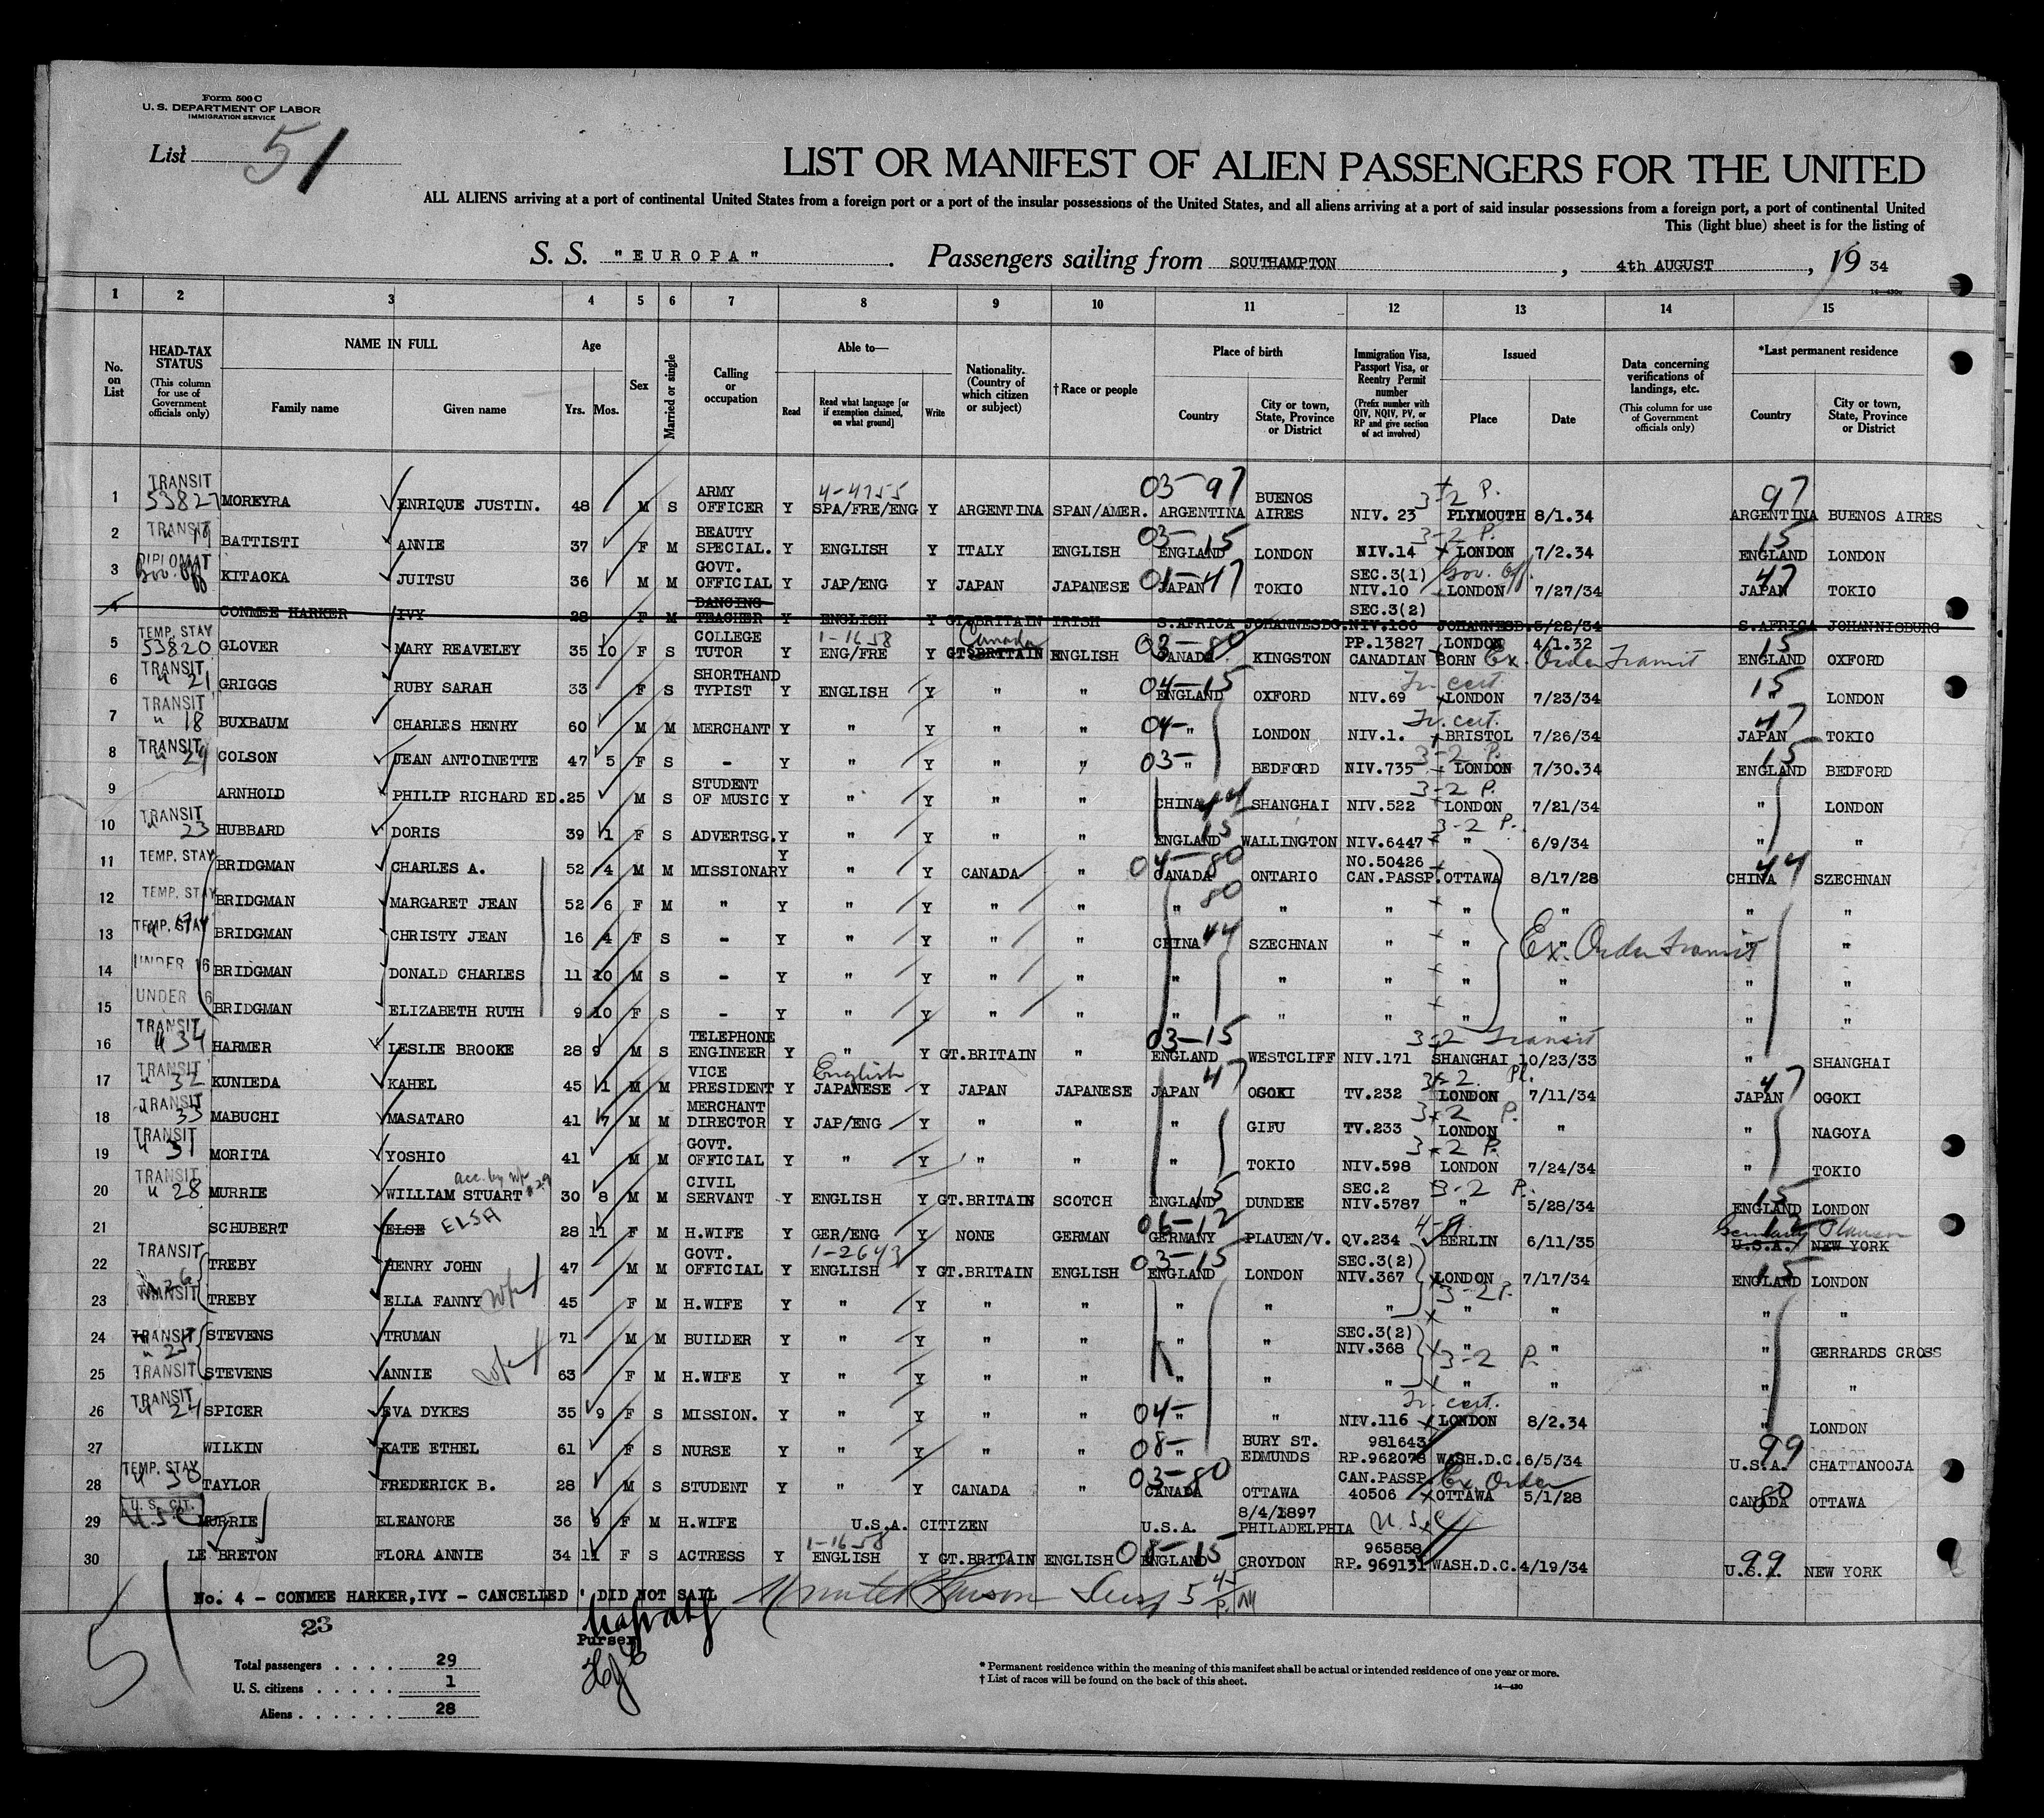 Form 500 C
U. S. DEPARTMENT OF LABOR
IMMIGRATION SERVICE
List 51
LIST OR MANIFEST OF ALIEN PASSENGERS FOR THE UNITED
ALL ALIENS arriving at a port of continental United States from a foreign port or a port of the insular possessions of the United States, and all aliens arriving at a port of said insular possessions from a foreign port, a port of continental United
This (light blue) sheet is for the listing of
S. S. "EUROPA". Passengers sailing from SOUTHAMPTON, 4th AUGUST, 19 34
1 2 3 4 5 6 7 8 9 10 11 12 13 14 15
No. on List
HEAD-TAX STATUS (This column for use of Government officials only)
NAME IN FULL Family name Given name
Age Yrs. Mos.
Sex
Married or single
Calling or occupation
Able to— Read Read what language [or if exemption claimed, on what ground] Write
Nationality. (Country of which citizen or subject)
†Race or people
Place of birth Country City or town, State, Province or District
Immigration Visa, Passport Visa, or Reentry Permit number (Prefix number with QIV, NQIV, PV, or RP and give section of act involved)
Issued Place Date
Data concerning verifications of landings, etc. (This column for use of Government officials only)
*Last permanent residence Country City or town, State, Province or District
1 TRANSIT 53827 MOREYRA ENRIQUE JUSTIN. 48 M S ARMY OFFICER Y 4-4755 SPA/FRE/ENG Y ARGENTINA SPAN/AMER. 03-97 ARGENTINA BUENOS AIRES NIV. 23 3-2 P. PLYMOUTH 8/1.34 97 ARGENTINA BUENOS AIRES
2 TRANSIT BATTISTI ANNIE 37 F M BEAUTY SPECIAL. Y ENGLISH Y ITALY ENGLISH 03-15 ENGLAND LONDON NIV.14 3-2 P. LONDON 7/2.34 15 ENGLAND LONDON
3 DIPLOMAT Gov. Off KITAOKA JUITSU 36 M M GOVT. OFFICIAL Y JAP/ENG Y JAPAN JAPANESE 01-47 JAPAN TOKIO SEC.3(1) NIV.10 Gov. Off. LONDON 7/27/34 47 JAPAN TOKIO
4 CONMEE HARKER IVY 28 F M DANCING TEACHER Y ENGLISH Y GT.BRITAIN IRISH S.AFRICA JOHANNESBG. SEC.3(2) NIV.186 JOHANNESB. 5/22/34 S.AFRICA JOHANNISBURG
5 TEMP. STAY 53820 GLOVER MARY REAVELEY 35 10 F S COLLEGE TUTOR Y 1-1658 ENG/FRE Y Canada GT.BRITAIN ENGLISH 03-80 CANADA KINGSTON PP.13827 CANADIAN BORN LONDON 4/1.32 Ex. Order Transit 15 ENGLAND OXFORD
6 TRANSIT " 21 GRIGGS RUBY SARAH 33 F S SHORTHAND TYPIST Y ENGLISH Y " " 04-15 ENGLAND OXFORD NIV.69 Tr. cert. LONDON 7/23/34 15 LONDON
7 TRANSIT " 18 BUXBAUM CHARLES HENRY 60 M M MERCHANT Y " Y " " 04- " LONDON NIV.1. Tr. cert. BRISTOL 7/26/34 47 JAPAN TOKIO
8 TRANSIT " 29 COLSON JEAN ANTOINETTE 47 5 F S - Y " Y " " 03- " BEDFORD NIV.735 3-2 P. LONDON 7/30.34 15 ENGLAND BEDFORD
9 ARNHOLD PHILIP RICHARD ED. 25 M S STUDENT OF MUSIC Y " Y " " CHINA 44 SHANGHAI NIV.522 3-2 P. LONDON 7/21/34 " LONDON
10 TRANSIT " 23 HUBBARD DORIS 39 1 F S ADVERTSG. Y " Y " " 15 ENGLAND WALLINGTON NIV.6447 3-2 P. " 6/9/34 " "
11 TEMP. STAY BRIDGMAN CHARLES A. 52 4 M M MISSIONARY Y " Y CANADA " 04-80 CANADA ONTARIO NO.50426 CAN.PASSP. OTTAWA 8/17/28 44 CHINA SZECHNAN
12 TEMP. STAY BRIDGMAN MARGARET JEAN 52 6 F M " Y " Y " " 80 " " " " " " "
13 TEMP. STAY BRIDGMAN CHRISTY JEAN 16 4 F S - Y " Y " " CHINA 44 SZECHNAN " " Ex. Order Transit " "
14 UNDER 16 BRIDGMAN DONALD CHARLES 11 10 M S - Y " Y " " " " " " " " "
15 UNDER 16 BRIDGMAN ELIZABETH RUTH 9 10 F S - Y " Y " " " " " " " " "
16 TRANSIT " 34 HARMER LESLIE BROOKE 28 9 M S TELEPHONE ENGINEER Y " Y GT.BRITAIN " 03-15 ENGLAND WESTCLIFF NIV.171 3-2 Transit SHANGHAI 10/23/33 " SHANGHAI
17 TRANSIT " 32 KUNIEDA KAHEL 45 1 M M VICE PRESIDENT Y English JAPANESE Y JAPAN JAPANESE JAPAN 47 OGOKI TV.232 3-2 Pl. LONDON 7/11/34 47 JAPAN OGOKI
18 TRANSIT " 33 MABUCHI MASATARO 41 7 M M MERCHANT DIRECTOR Y JAP/ENG Y " " " GIFU TV.233 3-2 P. LONDON " " NAGOYA
19 TRANSIT " 31 MORITA YOSHIO 41 M M GOVT. OFFICIAL Y " Y " " " TOKIO NIV.598 3-2 P. LONDON 7/24/34 " TOKIO
20 TRANSIT " 28 MURRIE WILLIAM STUART acc. by wife #29 30 8 M M CIVIL SERVANT Y ENGLISH Y GT.BRITAIN SCOTCH ENGLAND 15 DUNDEE SEC.2 NIV.5787 3-2 P. " 5/28/34 15 ENGLAND LONDON
21 SCHUBERT ELSE ELSA 28 11 F M H.WIFE Y GER/ENG Y NONE GERMAN 06-12 GERMANY PLAUEN/V. QV.234 BERLIN 6/11/35 Germany Plauen U.S.A. NEW YORK
22 TRANSIT " 26 TREBY HENRY JOHN 47 M M GOVT. OFFICIAL Y 1-2643 ENGLISH Y GT.BRITAIN ENGLISH 03-15 ENGLAND LONDON SEC.3(2) NIV.367 LONDON 7/17/34 15 ENGLAND LONDON
23 TRANSIT TREBY ELLA FANNY wife 45 F M H.WIFE Y " Y " " " " " 3-2 P. " " " "
24 TRANSIT " 25 STEVENS TRUMAN 71 M M BUILDER Y " Y " " " " SEC.3(2) NIV.368 " " " GERRARDS CROSS
25 TRANSIT STEVENS ANNIE wife 63 F M H.WIFE Y " Y " " " " " 3-2 P. " " " "
26 TRANSIT " 24 SPICER EVA DYKES 35 9 F S MISSION. Y " Y " " 04- " " NIV.116 Tr. cert. LONDON 8/2.34 " LONDON
27 WILKIN KATE ETHEL 61 F S NURSE Y " Y " " 08- " BURY ST. EDMUNDS 981643 RP.962078 WASH.D.C. 6/5/34 99 U.S.A. CHATTANOOJA
28 TEMP. STAY " 30 TAYLOR FREDERICK B. 28 M S STUDENT Y " Y CANADA " 03-80 CANADA OTTAWA CAN.PASSP. 40506 Ex. Order OTTAWA 5/1/28 80 CANADA OTTAWA
29 U.S. CIT. U.S.C. MURRIE ELEANORE 36 9 F M H.WIFE U.S.A. CITIZEN U.S.A. 8/4/1897 PHILADELPHIA U.S.C.
30 LE BRETON FLORA ANNIE 34 11 F S ACTRESS Y 1-1658 ENGLISH Y GT.BRITAIN ENGLISH 08-15 ENGLAND CROYDON 965858 RP. 969131 WASH.D.C. 4/19/34 99 U.S.A. NEW YORK
No. 4 - CONMEE HARKER, IVY - CANCELLED ' DID NOT SAIL
23
Purser
51
Total passengers . . . . 29
U. S. citizens . . . . . 1
Aliens . . . . . . 28
* Permanent residence within the meaning of this manifest shall be actual or intended residence of one year or more.
† List of races will be found on the back of this sheet.
14—430